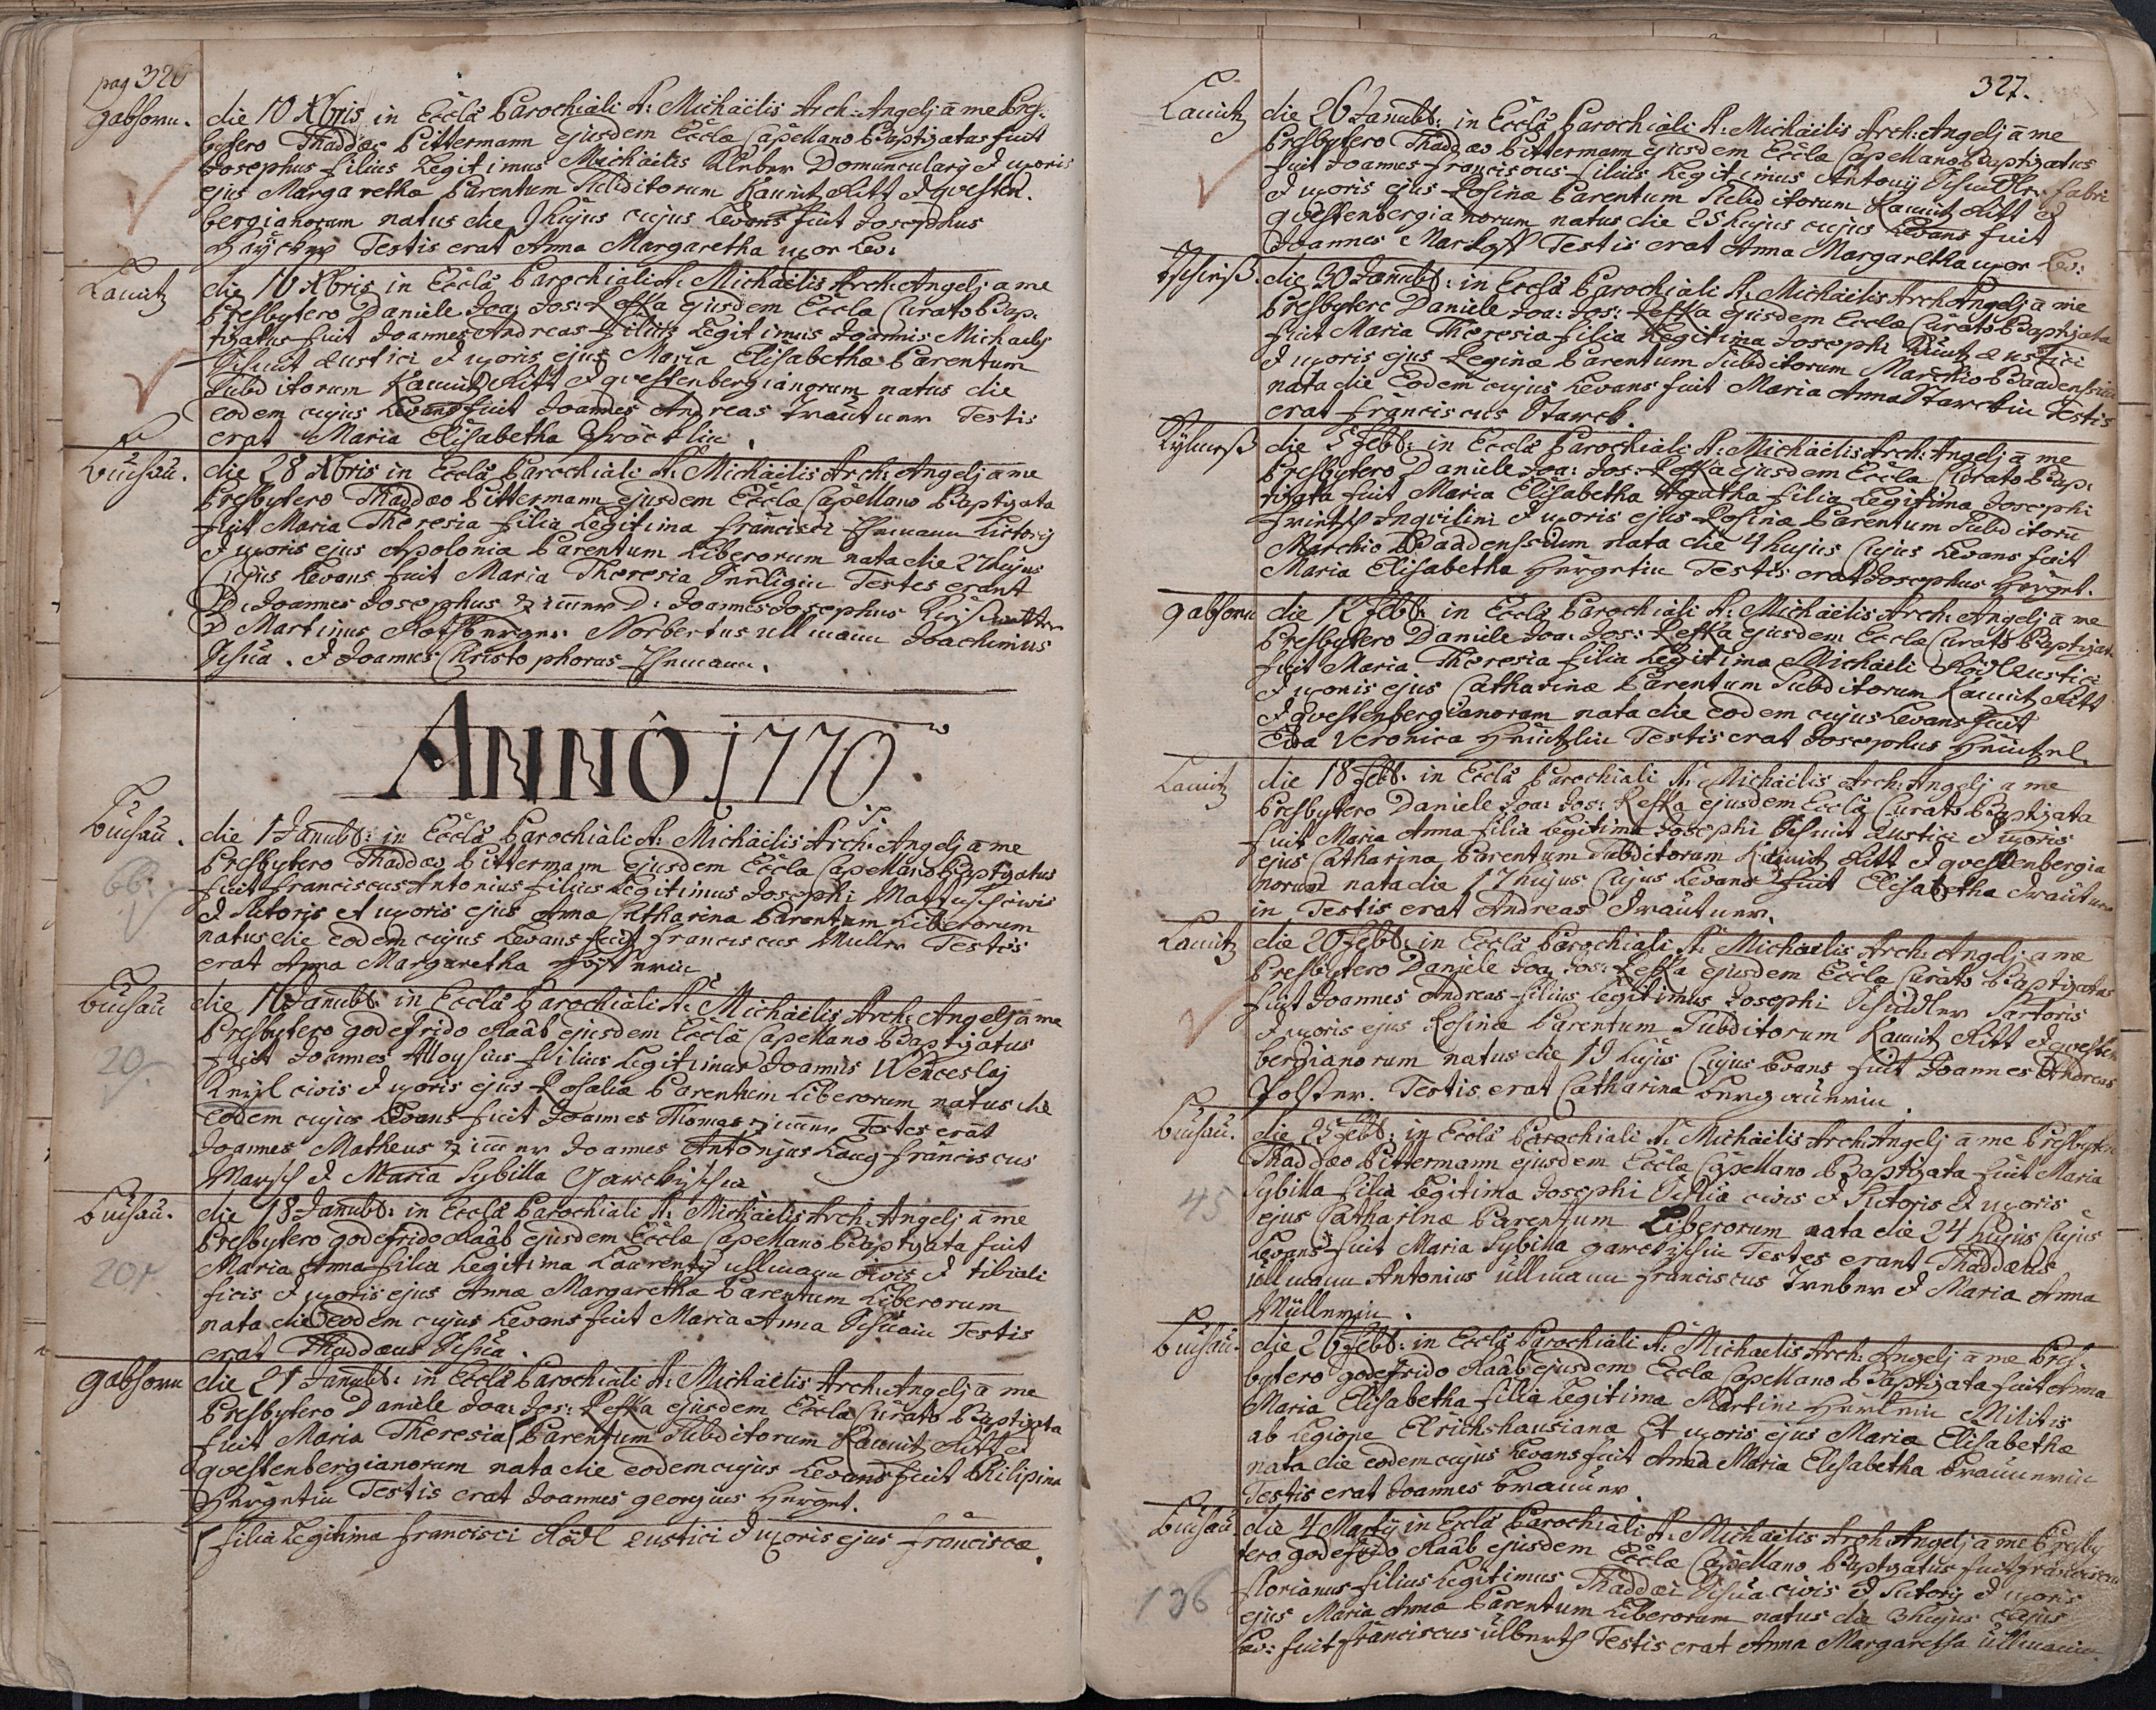 pag 326
Gabhorn. die 10 Xbris in Eccla Parochiali S: Michaelis Arch: Angelj a me Pres-
bytero Thaddæo Pittermann ejusdem Eccla Capellano Baptizatus fuit
Josephus filius Legitimus Michaelis Domuncularij & uxoris
ejus Margarethæ Parentum Subditorum Kaunitz Ritt & questen-
bergianorum natus die 9 hujus cujus Levans fuit Josephus
Testis erat Anna Margaretha uxor Lev:
Lantz die 16 Xbris in Eccla Parochiali S: Michaelis Arch: Angelj a me
Presbytero Daniele Joa: Jos: Refka ejusdem Eccla Curato Bap-
tizatus fuit Joannes Andreas filius Legitimus Joannis Michaelis
Rustici & uxoris ejus Maria Elisabetha Parentum
Subditorum Kaunitz Ritt & questenbergianorum natus die
eodem cujus Levans fuit Joannes Andreas Trautner Testis
erat Maria Elisabetha
Buchau. die 28 Xbris in Eccla Parochiali S: Michaelis Arch: Angelj a me
Presbytero Thaddæo Pittermann ejusdem Eccla Capellano Baptizata
fuit Maria Theresia filia Legitima Francisci Ehemann
& uxoris ejus Apolonia Parentum Liberorum nata die 27 hujus
Cujus Levans fuit Maria Theresia Testes erant
D: Joannes Josephus Zimmer D: Joannes Josephus
D Martinus Norbertus Ullmann Joachimus
Schua. & Joannes Christophorus Ehemann.
ANNÔ 1770.
Buchau. die 1 Januarii: in Eccla Parochiali S: Michaelis Arch: Angelj a me
Presbytero Thaddæo Pittermann ejusdem Eccla Capellano Baptizatus
66. fuit Franciscus Antonius filius Legitimus Josephi civis
& Sutoris et uxoris ejus Anna Catharina Parentum Liberorum
natus die eodem cujus Levans fuit Franciscus Muller Testis
erat Anna Margaretha
Buchau die 16 Januarii: in Eccla Parochiali S: Michaelis Arch: Angelj a me
Presbytero godefrido Raab ejusdem Eccla Capellano Baptizatus
20 fuit Joannes Alloysius filius Legitimus Joannis Wenceslaj
civis & uxoris ejus Rosaliæ Parentum Liberorum natus die
eodem cujus Levans fuit Joannes Thomas Zimmer Testes erant
Joannes Matheus Zimmer Joannes Antonjus Lang Franciscus
Marsch & Maria Sybilla
Buchau. die 18 Januarii: in Eccla Parochiali S: Michaelis Arch: Angelj a me
Presbytero godefrido Raab ejusdem Eccla Capellano Baptizata fuit
20 Maria Anna filia Legitima Laurentij Ullmann civis & tibiali
ficis & uxoris ejus Annæ Margarethæ Parentum Liberorum
nata die eodem cujus Levans fuit Maria Anna Schuain Testis
erat Thaddæus Schua.
gabhorn die 21 Januarii: in Eccla Parochiali S: Michaelis Arch: Angelj a me
Presbytero Daniele Joa: Jos: Refka ejusdem Eccla Curato Baptizata
fuit Maria Theresia Parentum Subditorum Kaunitz Ritt &
questenbergianorum nata die eodem cujus Levans fuit Philipina
Hergetin Testis erat Joannes georgius Herget.
filia Legitima Francisci Rödl Rustici & uxoris ejus Franciscæ.
327.
Lantz die 26 Januarii: in Eccla Parochiali S: Michaelis Arch: Angelj a me
Presbytero Thaddæo Pittermann ejusdem Eccla Capellano Baptizatus
fuit Joannes Franciscus filius Legitimus Antonij Schindler fabri
& uxoris ejus Rosinæ Parentum Subditorum Kaunitz Ritt &
questenbergianorum natus die 25 hujus cujus Levans fuit
Joannes Testis erat Anna Margaretha uxor Lev:
die 30 Januarii: in Eccla Parochiali S: Michaelis Arch Angelj a me
Presbytero Daniele Joa: Jos: Refka ejusdem Eccla Curato Baptizata
fuit Maria Theresia filia Legitima Josephi Rustici
& uxoris ejus Reginæ Parentum Subditorum Marchio Baadensium
nata die Eodem cujus Levans fuit Maria Anna Starckin Testis
erat Franciscus Starck.
die 5 Feb: in Eccla Parochiali S: Michaelis Arch: Angelj a me
Presbytero Daniele Joa: Jos: Refka ejusdem Eccla Curato Bap-
tizata fuit Maria Elisabetha Agatha filia Legitima Josephi
Inquilini & uxoris ejus Rosinæ Parentum Subditorū
Marchio Baadensium nata die 4 hujus Cujus Levans fuit
Maria Elisabetha Hergetin Testis erat Josephus Herget.
gabhorn die 12 Feb: in Eccla Parochiali S: Michaelis Arch: Angelj a me
Presbytero Daniele Joa: Jos: Refka ejusdem Eccla Curato Baptizata
fuit Maria Theresia filia Legitima Michaeli Rödl Rustici
& uxoris ejus Catharinæ Parentum Subditorum Kaunitz Ritt
& questenbergianorum nata die eodem cujus Levans fuit
Eva Veronica Testis erat Josephus
Lantz die 18 Feb: in Eccla Parochiali S: Michaelis Arch: Angelj a me
Presbytero Daniele Joa: Jos: Refka ejusdem Eccla Curato Baptizata
fuit Maria Anna filia Legitima Josephi Rustici & uxoris
ejus Catharina Parentum Subditorum Kaunitz Ritt & questenbergia
norum nata die 17 hujus Cujus Levans fuit Elisabetha Trautner
in Testis erat Andreas Trautner.
Lantz die 20 Feb: in Eccla Parochiali S: Michaelis Arch: Angelj a me
Presbytero Daniele Joa: Jos: Refka ejusdem Eccla Curato Baptizatus
fuit Joannes Andreas filius Legitimus Josephi Schindler Sartoris
& uxoris ejus Rosinæ Parentum Subditorum Kaunitz Ritt & questen
bergianorum natus die 19 hujus Cujus Levans fuit Joannes Andreas
Testis erat Catharina
Buchau. die 25 Feb: in Eccla Parochiali S: Michaelis Arch: Angelj a me Presbytero
Thaddæo Pittermann ejusdem Eccla Capellano Baptizata fuit Maria
45 Sybilla filia Legitima Josephi Schua civis & Sutoris & uxoris
ejus Catharinæ Parentum Liberorum nata die 24 hujus Cujus
Levans fuit Maria Sybilla Testes erant Thaddæus
Ullmann Antonius Ullmann Franciscus & Maria Anna
Müllerin.
Buchau. die 26 Feb: in Eccla Parochiali S: Michaelis Arch: Angelj a me Pres-
bytero godefrido Raab ejusdem Eccla Capellano Baptizata fuit Anna
Maria Elisabetha filia Legitima Martini Militis
ab Legione Elrichshausianæ Et uxoris ejus Mariæ Elisabethæ
nata die eodem cujus Levans fuit Anna Maria Elisabetha
Testis erat Joannes
Buchau die 4 Martij in Eccla Parochiali S: Michaelis Arch Angelj a me Presby
tero godefrido Raab ejusdem Eccla Capellano Baptizatus fuit Franciscus
136 Florianus filius Legitimus Thaddæi Schua civis & Sutoris & uxoris
ejus Maria Anna Parentum Liberorum natus die 3 hujus cujus
Lev: fuit Franciscus Testis erat Anna Margaretha Ullmann